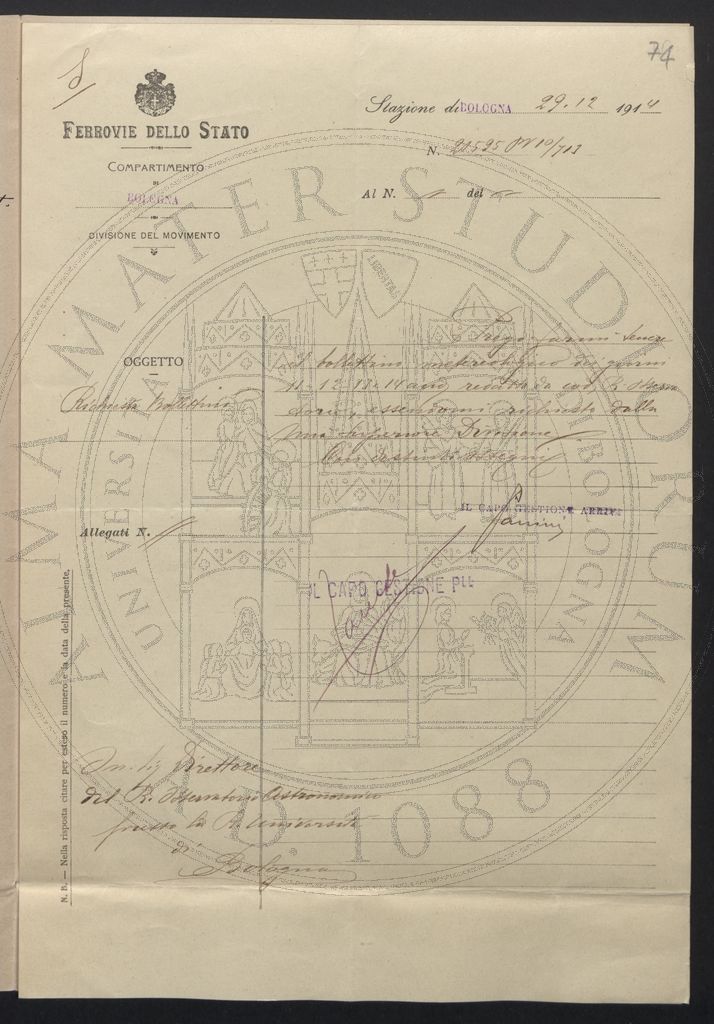 74
FERROVIE DELLO STATO
COMPARTIMENTO
DI
BOLOGNA
DIVISIONE DEL MOVIMENTO
Stazione di BOLOGNA 29.12 1914
N.
Al N. del
OGGETTO
Richiesta Bollettini
Prego farmi tenere
il bollettino meteorologico dei giorni
11-12-13-14 redatto da
essendomi richiesto dalla
mia Superiore Direzione
Con distinti ossequi
IL CAPO GESTIONE ARRIVI
Allegati N.
IL CAPO GESTIONE P.
Direttore
del R. Osservatorio Astronomico
presso la R. Università
di
Bologna
N. B. — Nella risposta citare per esteso il numero e la data della presente.
ALMA MATER STUDIORUM
UNIVERSITÀ DI BOLOGNA
LIBERTAS
A.D. 1088